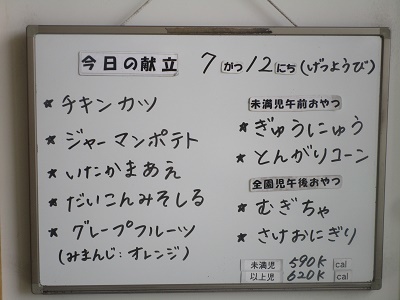 今日の献立 7がつ12にち(げつようび)
★チキンカツ
★ジャーマンポテト
★いたかまあえ
★だいこんみそしる
★グレープフルーツ
(みまんじ:オレンジ)
未満児午前おやつ
★ぎゅうにゅう
★とんがりコーン
全園児午後おやつ
★むぎちゃ
★さけおにぎり
未満児 590K cal
以上児 620K cal